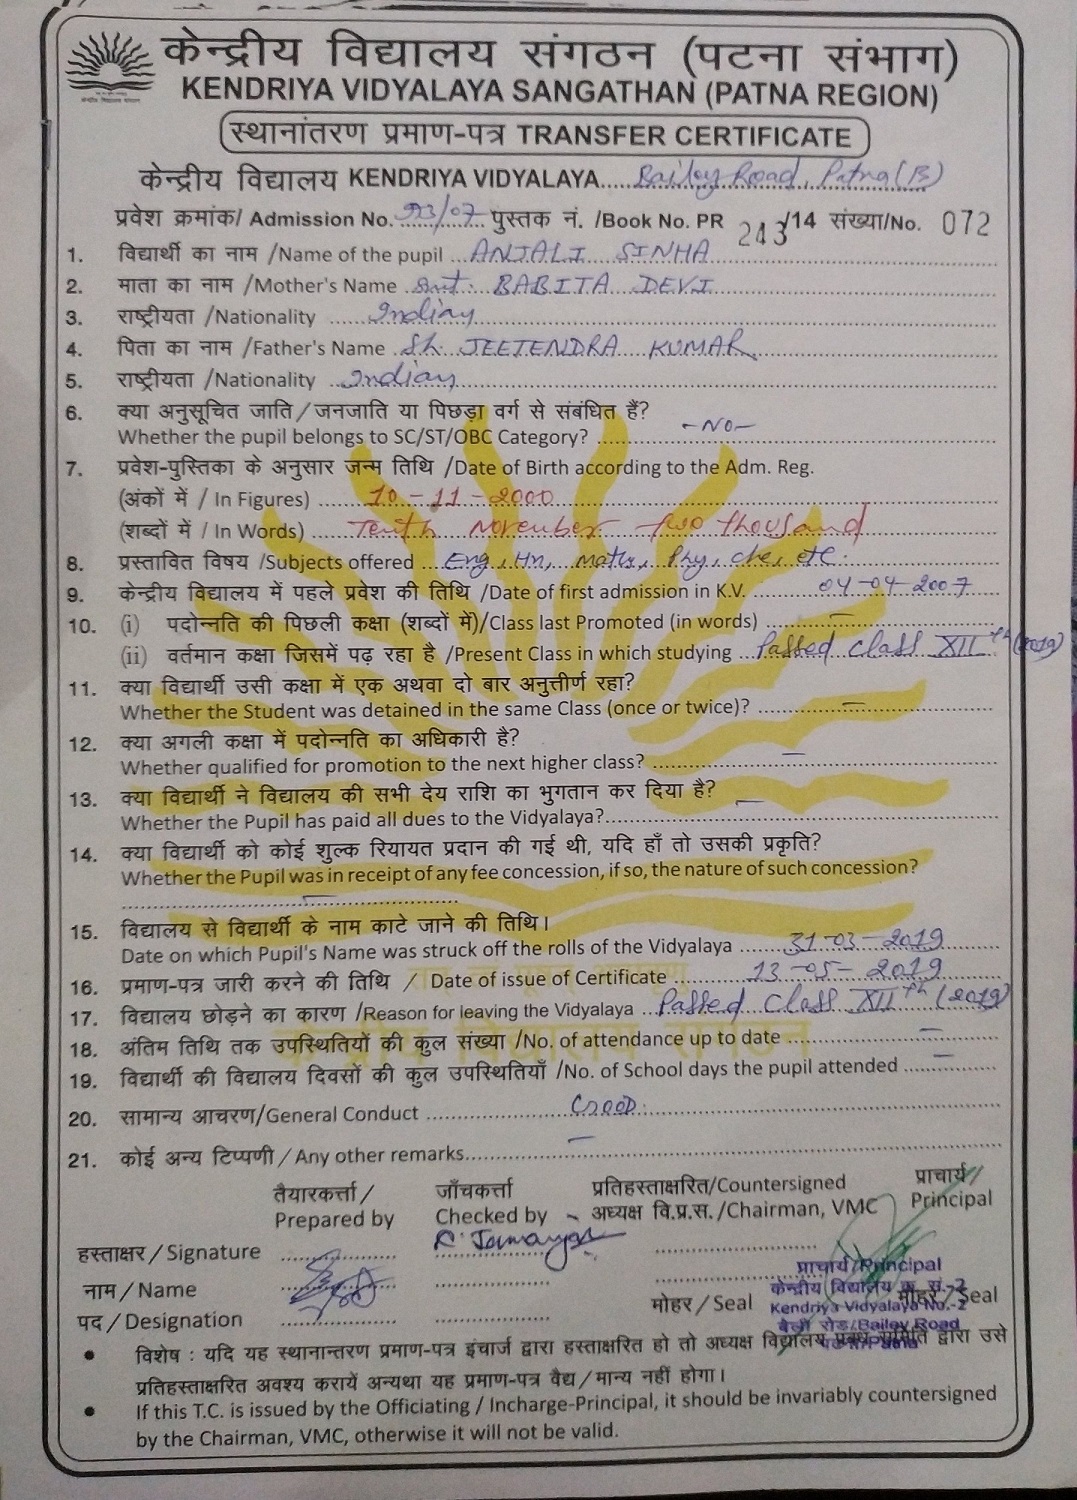 केन्द्रीय विद्यालय संगठन (पटना संभाग)
KENDRIYA VIDYALAYA SANGATHAN (PATNA REGION)
स्थानांतरण प्रमाण-पत्र TRANSFER CERTIFICATE
केन्द्रीय विद्यालय KENDRIYA VIDYALAYA.... Bailey Road, Patna (B)
प्रवेश क्रमांक/ Admission No. 93/07 पुस्तक नं. /Book No. PR 243/14 संख्या/No. 072
1. विद्यार्थी का नाम /Name of the pupil ... ANJALI SINHA
2. माता का नाम /Mother's Name Smt. BABITA DEVI
3. राष्ट्रीयता /Nationality ...... Indian
4. पिता का नाम /Father's Name Sh. JEETENDRA KUMAR
5. राष्ट्रीयता /Nationality .. Indian
6. क्या अनुसूचित जाति / जनजाति या पिछड़ा वर्ग से संबंधित हैं?
Whether the pupil belongs to SC/ST/OBC Category? ........ -NO-
7. प्रवेश-पुस्तिका के अनुसार जन्म तिथि /Date of Birth according to the Adm. Reg.
(अंकों में / In Figures) ...... 10-11-2000
(शब्दों में / In Words) ..... Tenth November two thousand
8. प्रस्तावित विषय /Subjects offered ... Eng, Hn, Maths, Phy, che, etc.
9. केन्द्रीय विद्यालय में पहले प्रवेश की तिथि /Date of first admission in K.V. ........ 04-04-2007
10. (i) पदोन्नति की पिछली कक्षा (शब्दों में)/Class last Promoted (in words) ...... —
(ii) वर्तमान कक्षा जिसमें पढ़ रहा है /Present Class in which studying ... Passed class XIIth (2019)
11. क्या विद्यार्थी उसी कक्षा में एक अथवा दो बार अनुत्तीर्ण रहा?
Whether the Student was detained in the same Class (once or twice)? ........ —
12. क्या अगली कक्षा में पदोन्नति का अधिकारी है?
Whether qualified for promotion to the next higher class? ........ —
13. क्या विद्यार्थी ने विद्यालय की सभी देय राशि का भुगतान कर दिया है? —
Whether the Pupil has paid all dues to the Vidyalaya?........
14. क्या विद्यार्थी को कोई शुल्क रियायत प्रदान की गई थी, यदि हाँ तो उसकी प्रकृति?
Whether the Pupil was in receipt of any fee concession, if so, the nature of such concession?
........ —
15. विद्यालय से विद्यार्थी के नाम काटे जाने की तिथि।
Date on which Pupil's Name was struck off the rolls of the Vidyalaya ...... 31-03-2019
16. प्रमाण-पत्र जारी करने की तिथि / Date of issue of Certificate ........ 13-05-2019
17. विद्यालय छोड़ने का कारण /Reason for leaving the Vidyalaya ... Passed Class XIIth (2019)
18. अंतिम तिथि तक उपस्थितियों की कुल संख्या /No. of attendance up to date ........ —
19. विद्यार्थी की विद्यालय दिवसों की कुल उपस्थितियाँ /No. of School days the pupil attended ...... —
20. सामान्य आचरण/General Conduct ........ GOOD.
21. कोई अन्य टिप्पणी / Any other remarks........ —
तैयारकर्त्ता / जाँचकर्त्ता प्रतिहस्ताक्षरित/Countersigned प्राचार्य/
Prepared by Checked by अध्यक्ष वि.प्र.स. /Chairman, VMC Principal
हस्ताक्षर / Signature
नाम / Name
पद / Designation
मोहर / Seal मोहर / Seal
प्राचार्य/Principal
केन्द्रीय विद्यालय क्र. सं.-2
Kendriya Vidyalaya No.-2
बेली रोड/Bailey Road
● विशेष : यदि यह स्थानान्तरण प्रमाण-पत्र इंचार्ज द्वारा हस्ताक्षरित हो तो अध्यक्ष विद्यालय प्रबंध समिति द्वारा उसे
प्रतिहस्ताक्षरित अवश्य करायें अन्यथा यह प्रमाण-पत्र वैद्य / मान्य नहीं होगा।
● If this T.C. is issued by the Officiating / Incharge-Principal, it should be invariably countersigned
by the Chairman, VMC, otherwise it will not be valid.